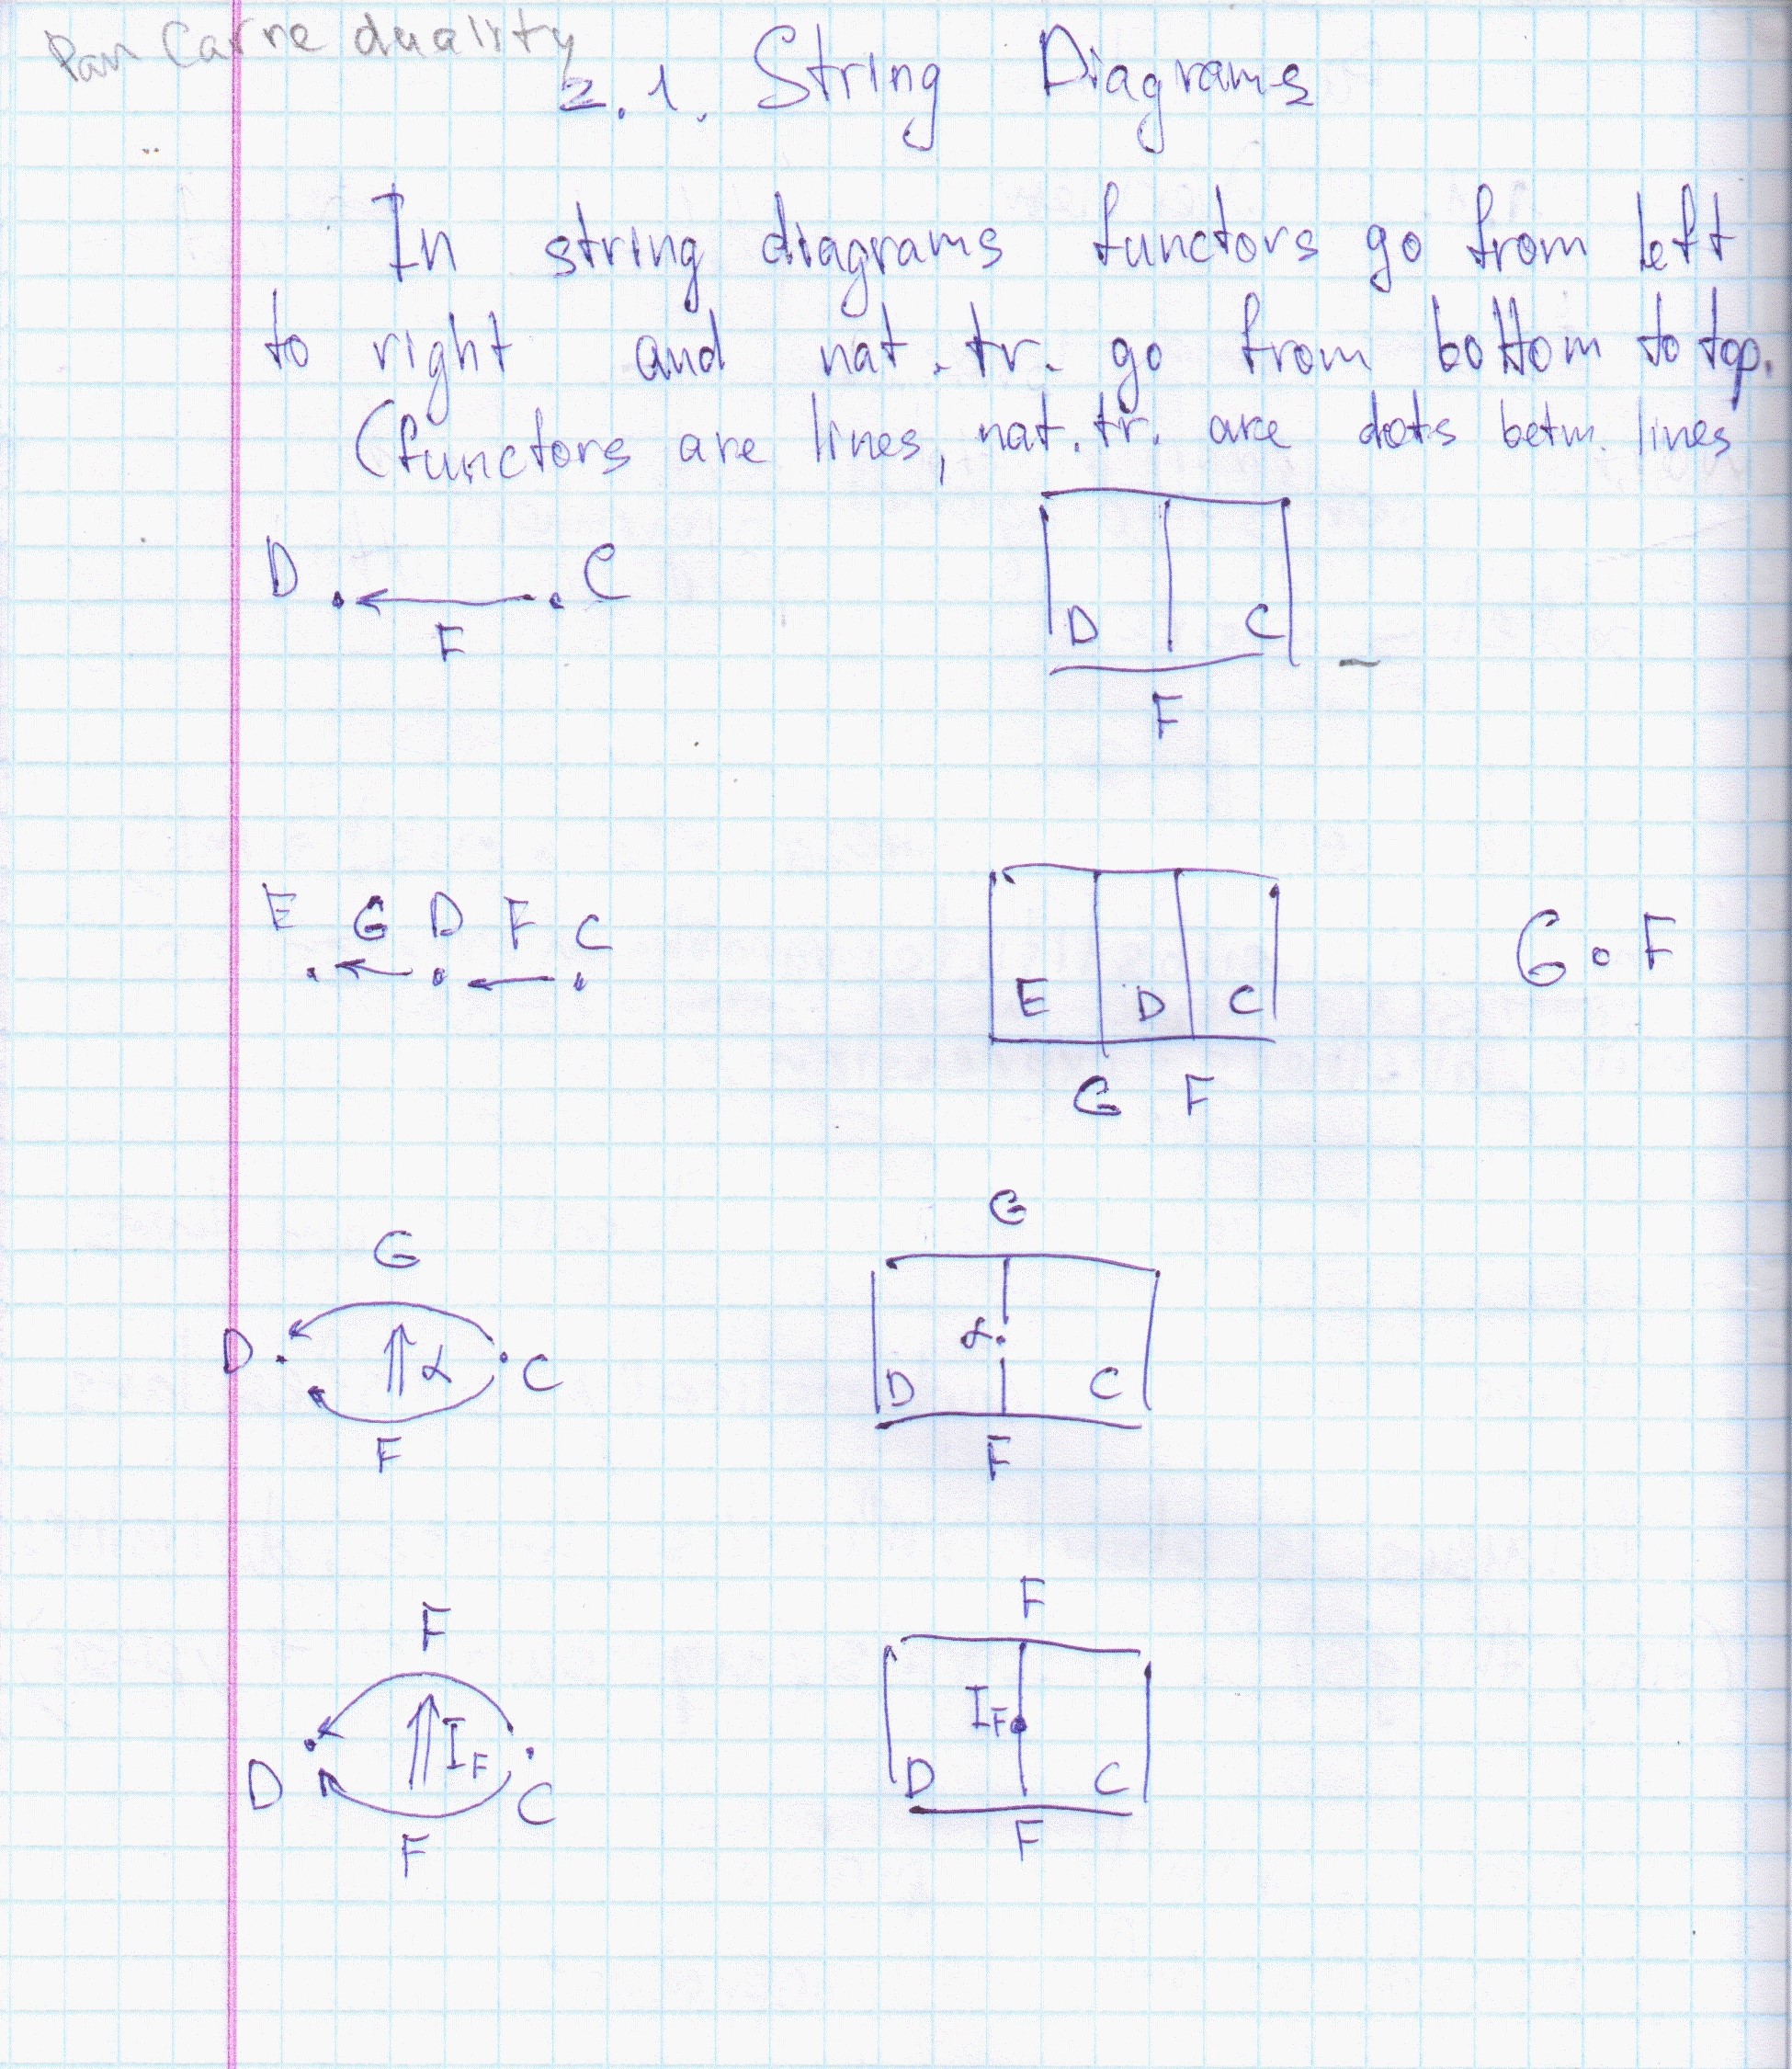 Pan Carne duality
2.1. String Diagrams
In string diagrams functors go from left
to right and nat. tr. go from bottom to top.
(functors are lines, nat. tr. are dots betw. lines
D C
F
D C
F
E G D F C
E D C
G F
G∘F
G
D α C
F
G
α
D C
F
F
D I_F C
F
F
I_F
D C
F